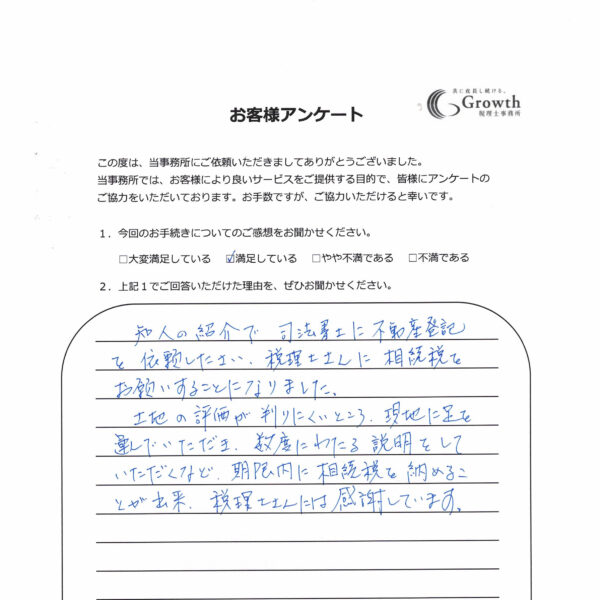 共に成長し続ける。
Growth
税理士事務所
お客様アンケート
この度は、当事務所にご依頼いただきましてありがとうございました。
当事務所では、お客様により良いサービスをご提供する目的で、皆様にアンケートの
ご協力をいただいております。お手数ですが、ご協力いただけると幸いです。
1．今回のお手続きについてのご感想をお聞かせください。
□大変満足している ☑満足している □やや不満である □不満である
2．上記1でご回答いただけた理由を、ぜひお聞かせください。
知人の紹介で 司法書士に不動産登記
を依頼したさい、税理士さんに 相続税を
お願いすることになりました。
土地の評価が判りにくいところ、現地に足を
運んでいただき、数度にわたる説明をして
いただくなど、期限内に相続税を納めるこ
とが出来、税理士さんには感謝しています。